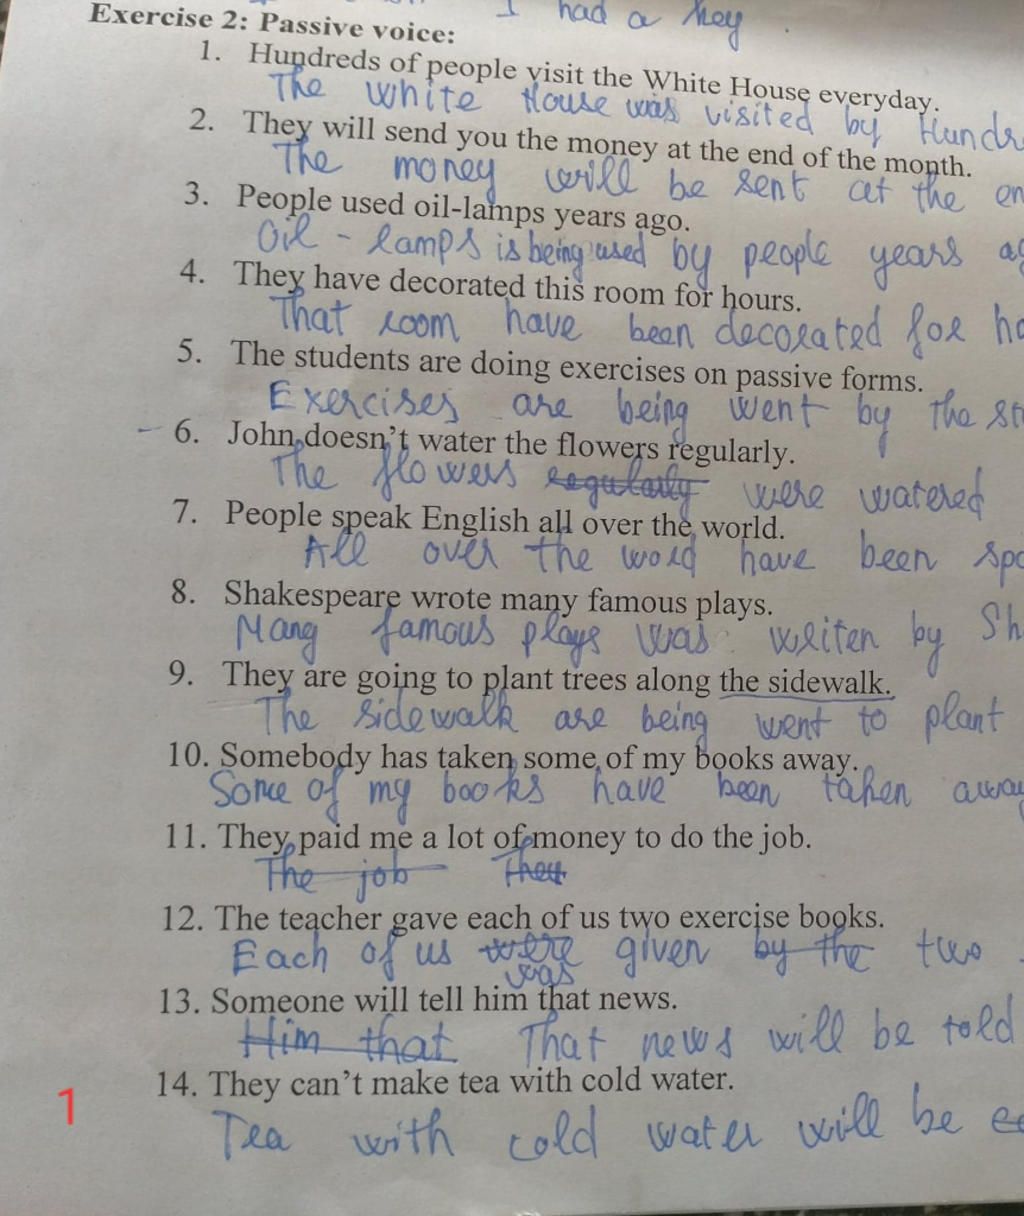 I had a key.
Exercise 2: Passive voice:
1. Hundreds of people visit the White House everyday.
The white House was visited by Hundr
2. They will send you the money at the end of the month.
The money will be sent at the en
3. People used oil-lamps years ago.
Oil - lamps is being used by people years ag
4. They have decorated this room for hours.
That room have been decorated for ho
5. The students are doing exercises on passive forms.
Exercises are being went by the stu
- 6. John doesn't water the flowers regularly.
The flowers regularly were watered
7. People speak English all over the world.
All over the word have been spo
8. Shakespeare wrote many famous plays.
Mang famous plays was writen by Sh
9. They are going to plant trees along the sidewalk.
The sidewalk are being went to plant
10. Somebody has taken some of my books away.
Some of my books have been taken away
11. They paid me a lot of money to do the job.
The job They
12. The teacher gave each of us two exercise books.
Each of us were given by the two
was
13. Someone will tell him that news.
Him that That news will be told
14. They can't make tea with cold water.
1
Tea with cold water will be